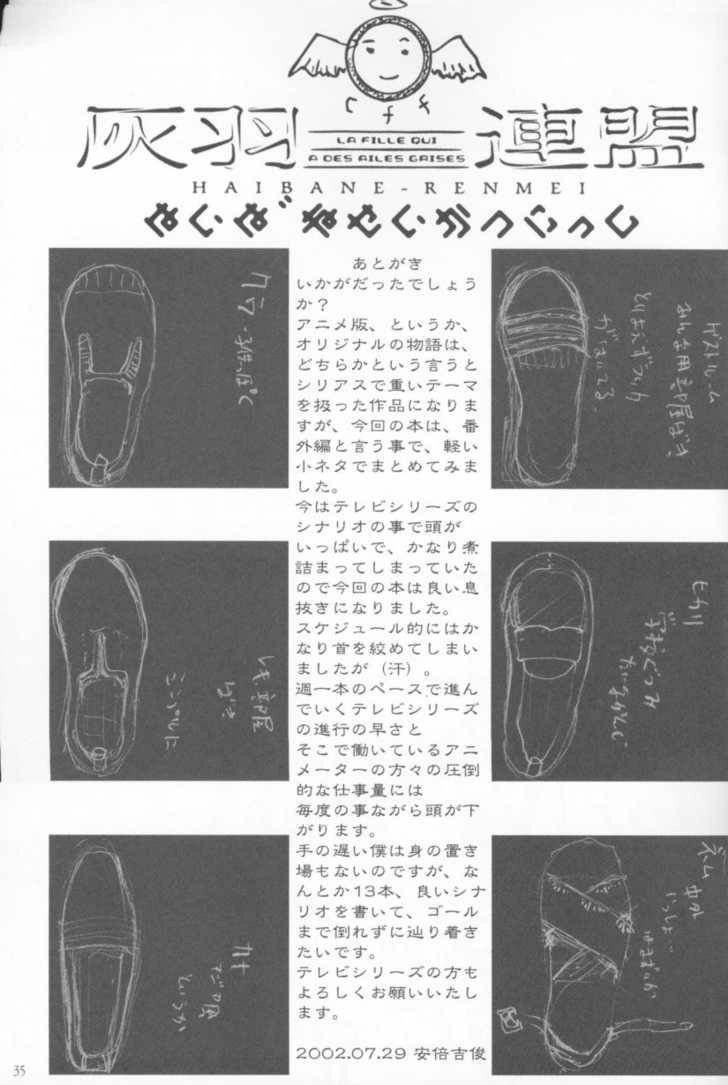 灰羽連盟
LA FILLE QUI
A DES AILES GRISES
HAIBANE-RENMEI
はいばねせいかつにっし
あとがき
いかがだったでしょう
か？
アニメ版、というか、
オリジナルの物語は、
どちらかという言うと
シリアスで重いテーマ
を扱った作品になりま
すが、今回の本は、番
外編と言う事で、軽い
小ネタでまとめてみま
した。
今はテレビシリーズの
シナリオの事で頭が
いっぱいで、かなり煮
詰まってしまっていた
ので今回の本は良い息
抜きになりました。
スケジュール的にはか
なり首を絞めてしまい
ましたが（汗）。
週一本のペースで進ん
でいくテレビシリーズ
の進行の早さと
そこで働いているアニ
メーターの方々の圧倒
的な仕事量には
毎度の事ながら頭が下
がります。
手の遅い僕は身の置き
場もないのですが、な
んとか13本、良いシナ
リオを書いて、ゴール
まで倒れずに辿り着き
たいです。
テレビシリーズの方も
よろしくお願いいたし
ます。
2002.07.29 安倍吉俊
クラ
ゲストルーム
みんな用部屋ばき
とりあえずつっか
ヒカリ
レキ部屋
ばき
カナ
ネム
35